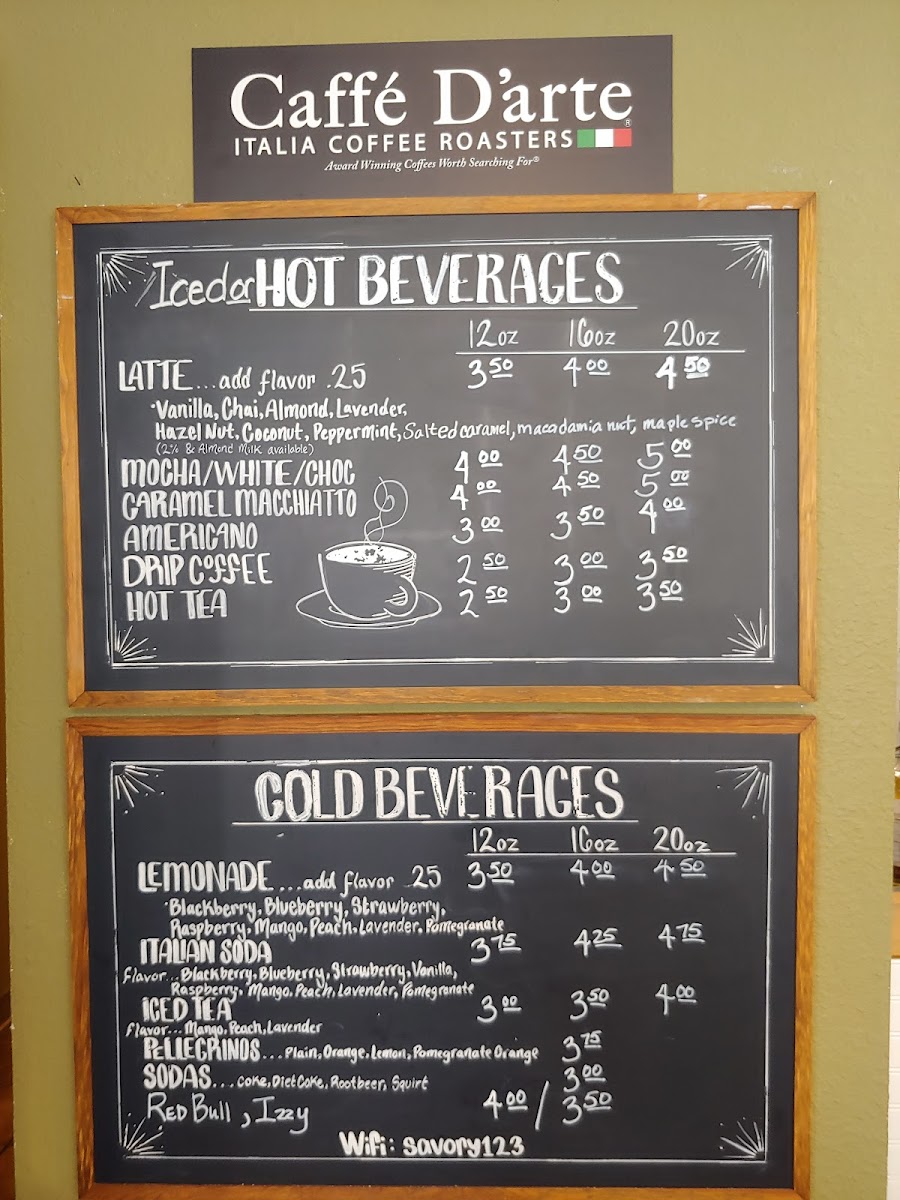 Caffé D'arte
ITALIA COFFEE ROASTERS
Award Winning Coffees Worth Searching For®
Iced or HOT BEVERAGES
12oz 16oz 20oz
LATTE...add flavor .25 3.50 4.00 4.50
·Vanilla, Chai, Almond, Lavender,
Hazel Nut, Coconut, Peppermint, Salted caramel, macadamia nut, maple spice
(2% & Almond Milk available)
MOCHA/WHITE/CHOC 4.00 4.50 5.00
CARAMEL MACCHIATTO 4.00 4.50 5.00
AMERICANO 3.00 3.50 4.00
DRIP COFFEE 2.50 3.00 3.50
HOT TEA 2.50 3.00 3.50
COLD BEVERAGES
12oz 16oz 20oz
LEMONADE....add flavor .25 3.50 4.00 4.50
·Blackberry, Blueberry, Strawberry,
Raspberry, Mango, Peach, Lavender, Pomegranate
ITALIAN SODA 3.75 4.25 4.75
flavor...Blackberry, Blueberry, Strawberry, Vanilla,
Raspberry, Mango, Peach, Lavender, Pomegranate
ICED TEA 3.00 3.50 4.00
flavor... Mango, Peach, Lavender
PELLEGRINOS...Plain, Orange, Lemon, Pomegranate Orange 3.75
SODAS...Coke, Diet Coke, Rootbeer, Squirt 3.00
RED BULL, Izzy 4.00 / 3.50
Wifi: savory123